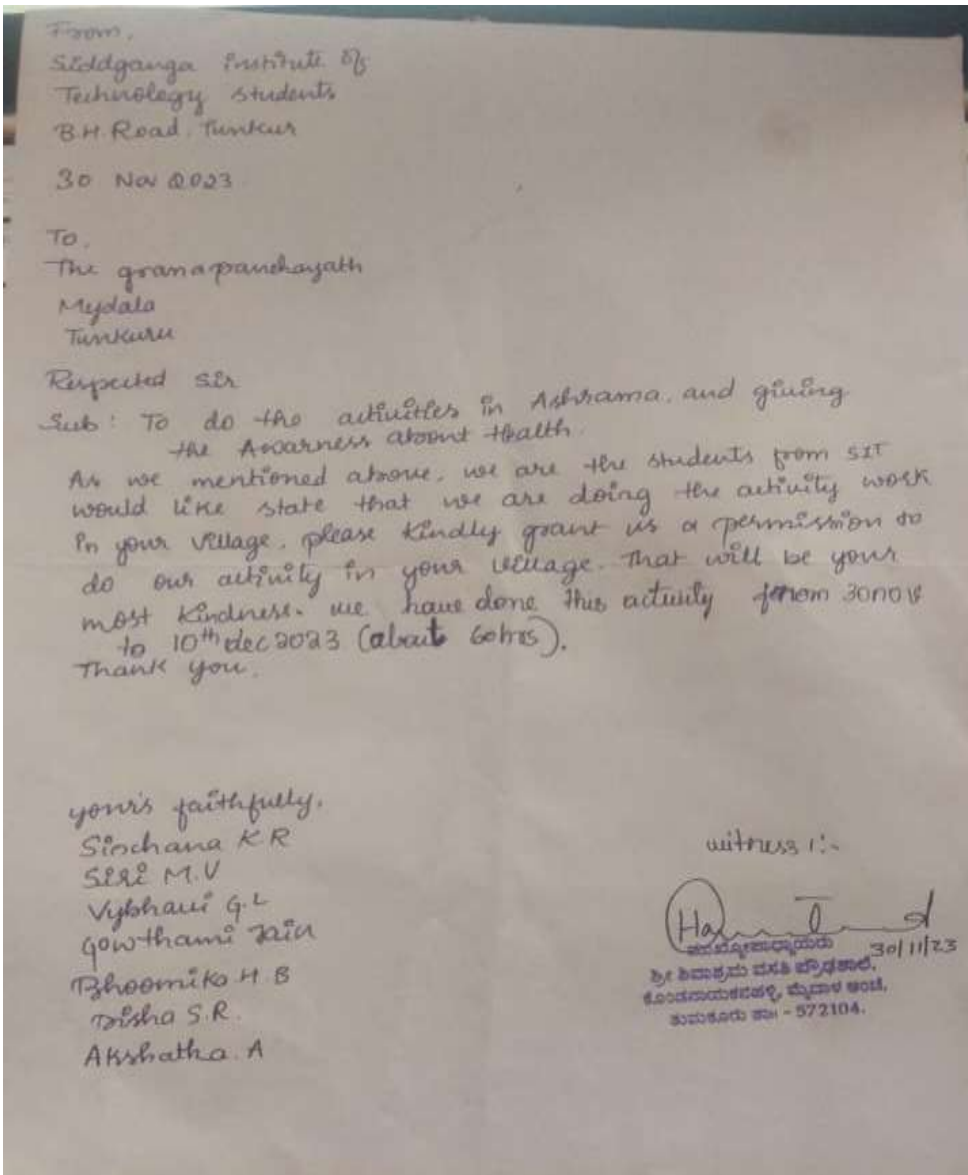 From,
Siddganga Institute of
Technology students
B.H. Road, Tumkur
30 Nov 2023
To,
The gramapanchayath
Mydala
Tumkuru
Respected Sir
Sub : To do the activities in Ashrama, and giving
the Awarness about Health.
As we mentioned above, we are the students from SIT
would like state that we are doing the activity work
in your village. please kindly grant us a permission to
do our activity in your village. That will be your
most kindness. we have done this activity from 30nov
to 10th dec 2023 (about 60hrs).
Thank you.
your's faithfully,
Sinchana K R
Siri M.V
Vybhavi G.L
Gowthami Jain
Bhoomika H B
Disha S.R.
Akshatha. A
witness 1:-
30/11/23
ಮುಖ್ಯೋಪಾಧ್ಯಾಯರು
ಶ್ರೀ ಶಿವಾಶ್ರಮ ವಸತಿ ಪ್ರೌಢಶಾಲೆ,
ಕೊಂಡನಾಯಕನಹಳ್ಳಿ, ಮೈದಾಳ ಅಂಚೆ,
ತುಮಕೂರು ತಾಃ - 572104.